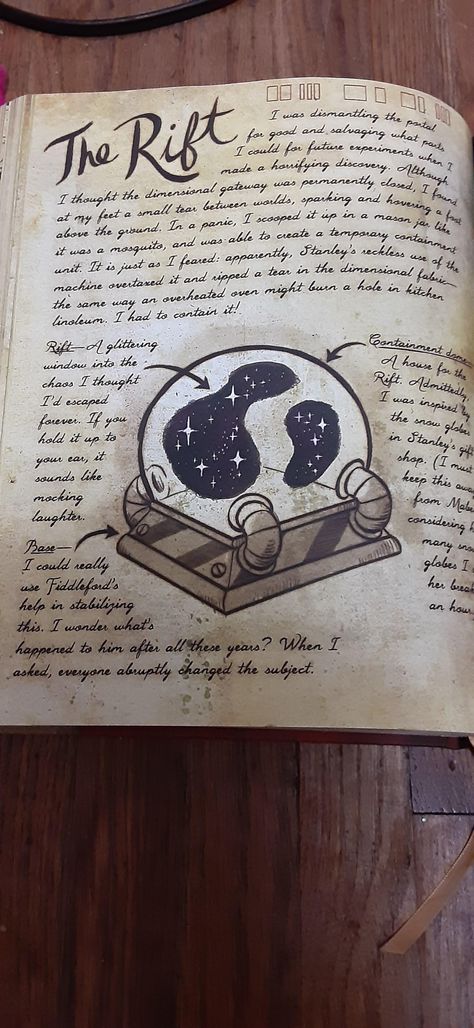 The Rift
I was dismantling the portal
for good and salvaging what parts
I could for future experiments when I
made a horrifying discovery. Although
I thought the dimensional gateway was permanently closed, I found
at my feet a small tear between worlds, sparking and hovering a foot
above the ground. In a panic, I scooped it up in a mason jar like
it was a mosquito, and was able to create a temporary containment
unit. It is just as I feared: apparently, Stanley's reckless use of the
machine overtaxed it and ripped a tear in the dimensional fabric—
the same way an overheated oven might burn a hole in kitchen
linoleum. I had to contain it!
Rift—A glittering
window into the
chaos I thought
I'd escaped
forever. If you
hold it up to
your ear, it
sounds like
mocking
laughter.
Containment
A house for the
Rift. Admittedly,
I was inspired
the snow globes
in Stanley's
shop. (I must
keep this
from
considering
many
globes I
her
an
Base—
I could really
use Fiddleford's
help in stabilizing
this. I wonder what's
happened to him after all these years? When I
asked, everyone abruptly changed the subject.